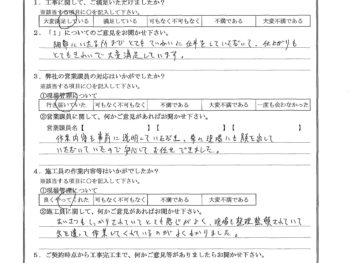 1．工事に関して、ご満足いただけましたか？
※該当する項目に○を記入して下さい。
大変満足している 満足している 可もなく不可もなく 不満である 大変不満である
2．「1」についてのご意見をお聞かせ下さい。
細部にいたるまでとてもていねいに仕事をしていただいて、仕上がりも
とてもきれいで大変満足しています。
3．弊社の営業議員の対応はいかがでしたか？
※該当する項目に○を記入して下さい。
①現場管理について
行き届いていた 可もなく不可もなく 不満である 大変不満である 一度も会わなかった
②営業議員に関して、何かご意見があればお聞かせ下さい。
営業議員名【 】【 】【 】
作業内容も事前に説明していただき、 現場にも顔を出して
いただいていたので安心してお任せできました。
4．施工員の作業内容等はいかがでしたか？
※該当する項目に○を記入して下さい。
①現場管理について
良くやってくれた 可もなく不可もなく 不満である 大変不満である
②施工員に関して、何かご意見があればお聞かせ下さい。
あいさつもしっかりされていてとても感じがよく、現場も整理整頓されていて
気を遣って作業してくれているのがよくわかりました。
5．ご契約時点から工事完了まで、何かご意見等がありましたらお聞かせ下さい。